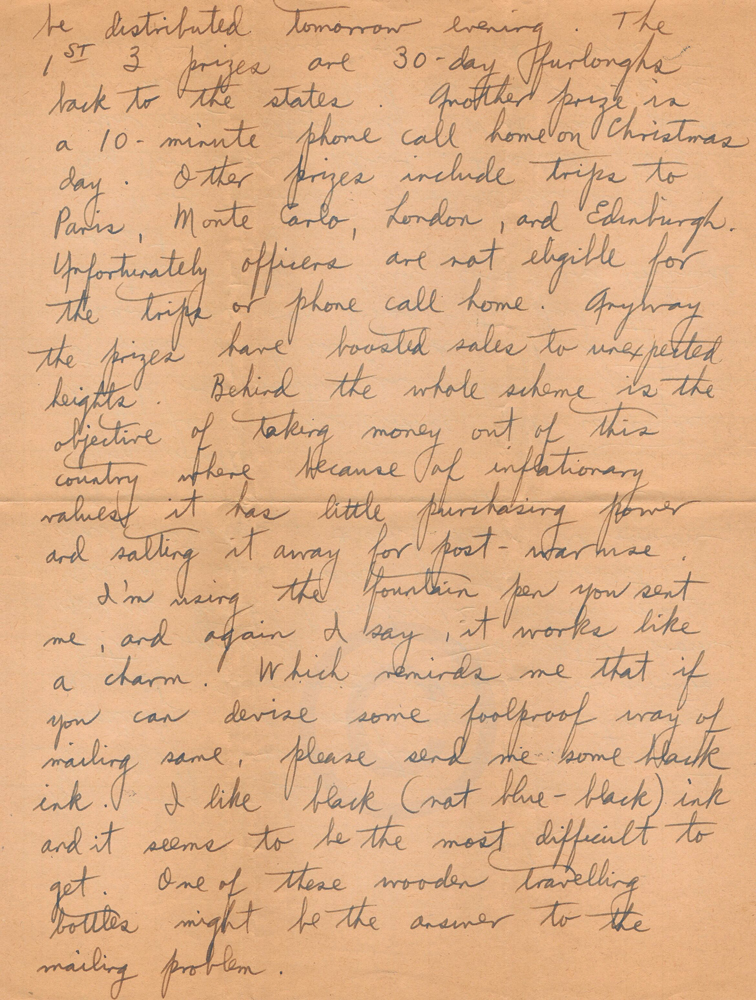 be distributed tomorrow evening. The
1ST 3 prizes are 30-day furloughs
back to the states. Another prize is
a 10-minute phone call home on Christmas
day. Other prizes include trips to
Paris, Monte Carlo, London, and Edinburgh.
Unfortunately officers are not eligible for
the trips or phone call home. Anyway
the prizes have boosted sales to unexpected
heights. Behind the whole scheme is the
objective of taking money out of this
country where because of inflationary
values it has little purchasing power
and salting it away for post-war use.
I'm using the fountain pen you sent
me, and again I say, it works like
a charm. Which reminds me that if
you can devise some foolproof way of
mailing same, please send me some black
ink. I like black (not blue-black) ink
and it seems to be the most difficult to
get. One of these wooden travelling
bottles might be the answer to the
mailing problem.